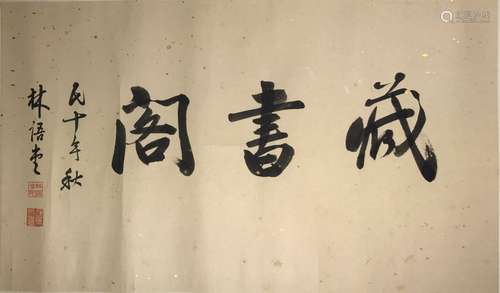 藏書閣
民十年秋
林語堂